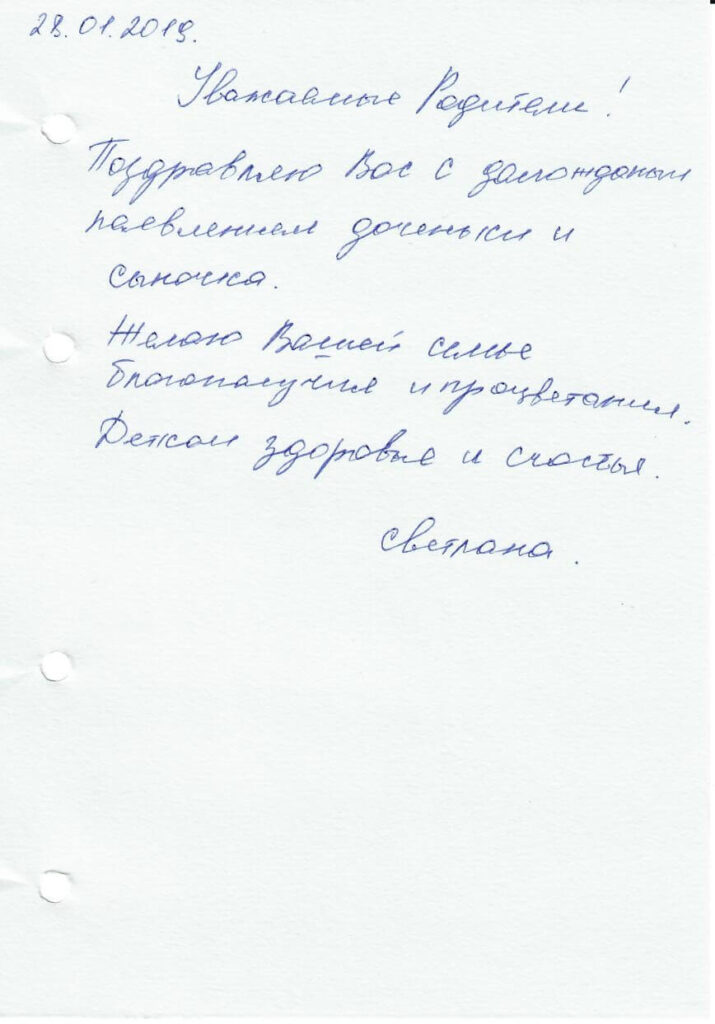 28.01.2019.
Уважаемые Родители!
Поздравляю Вас с долгожданым
появлением доченьки и
сыночка.
Желаю Вашей семье
благополучия и процветания.
Деткам здоровья и счастья.
Светлана.